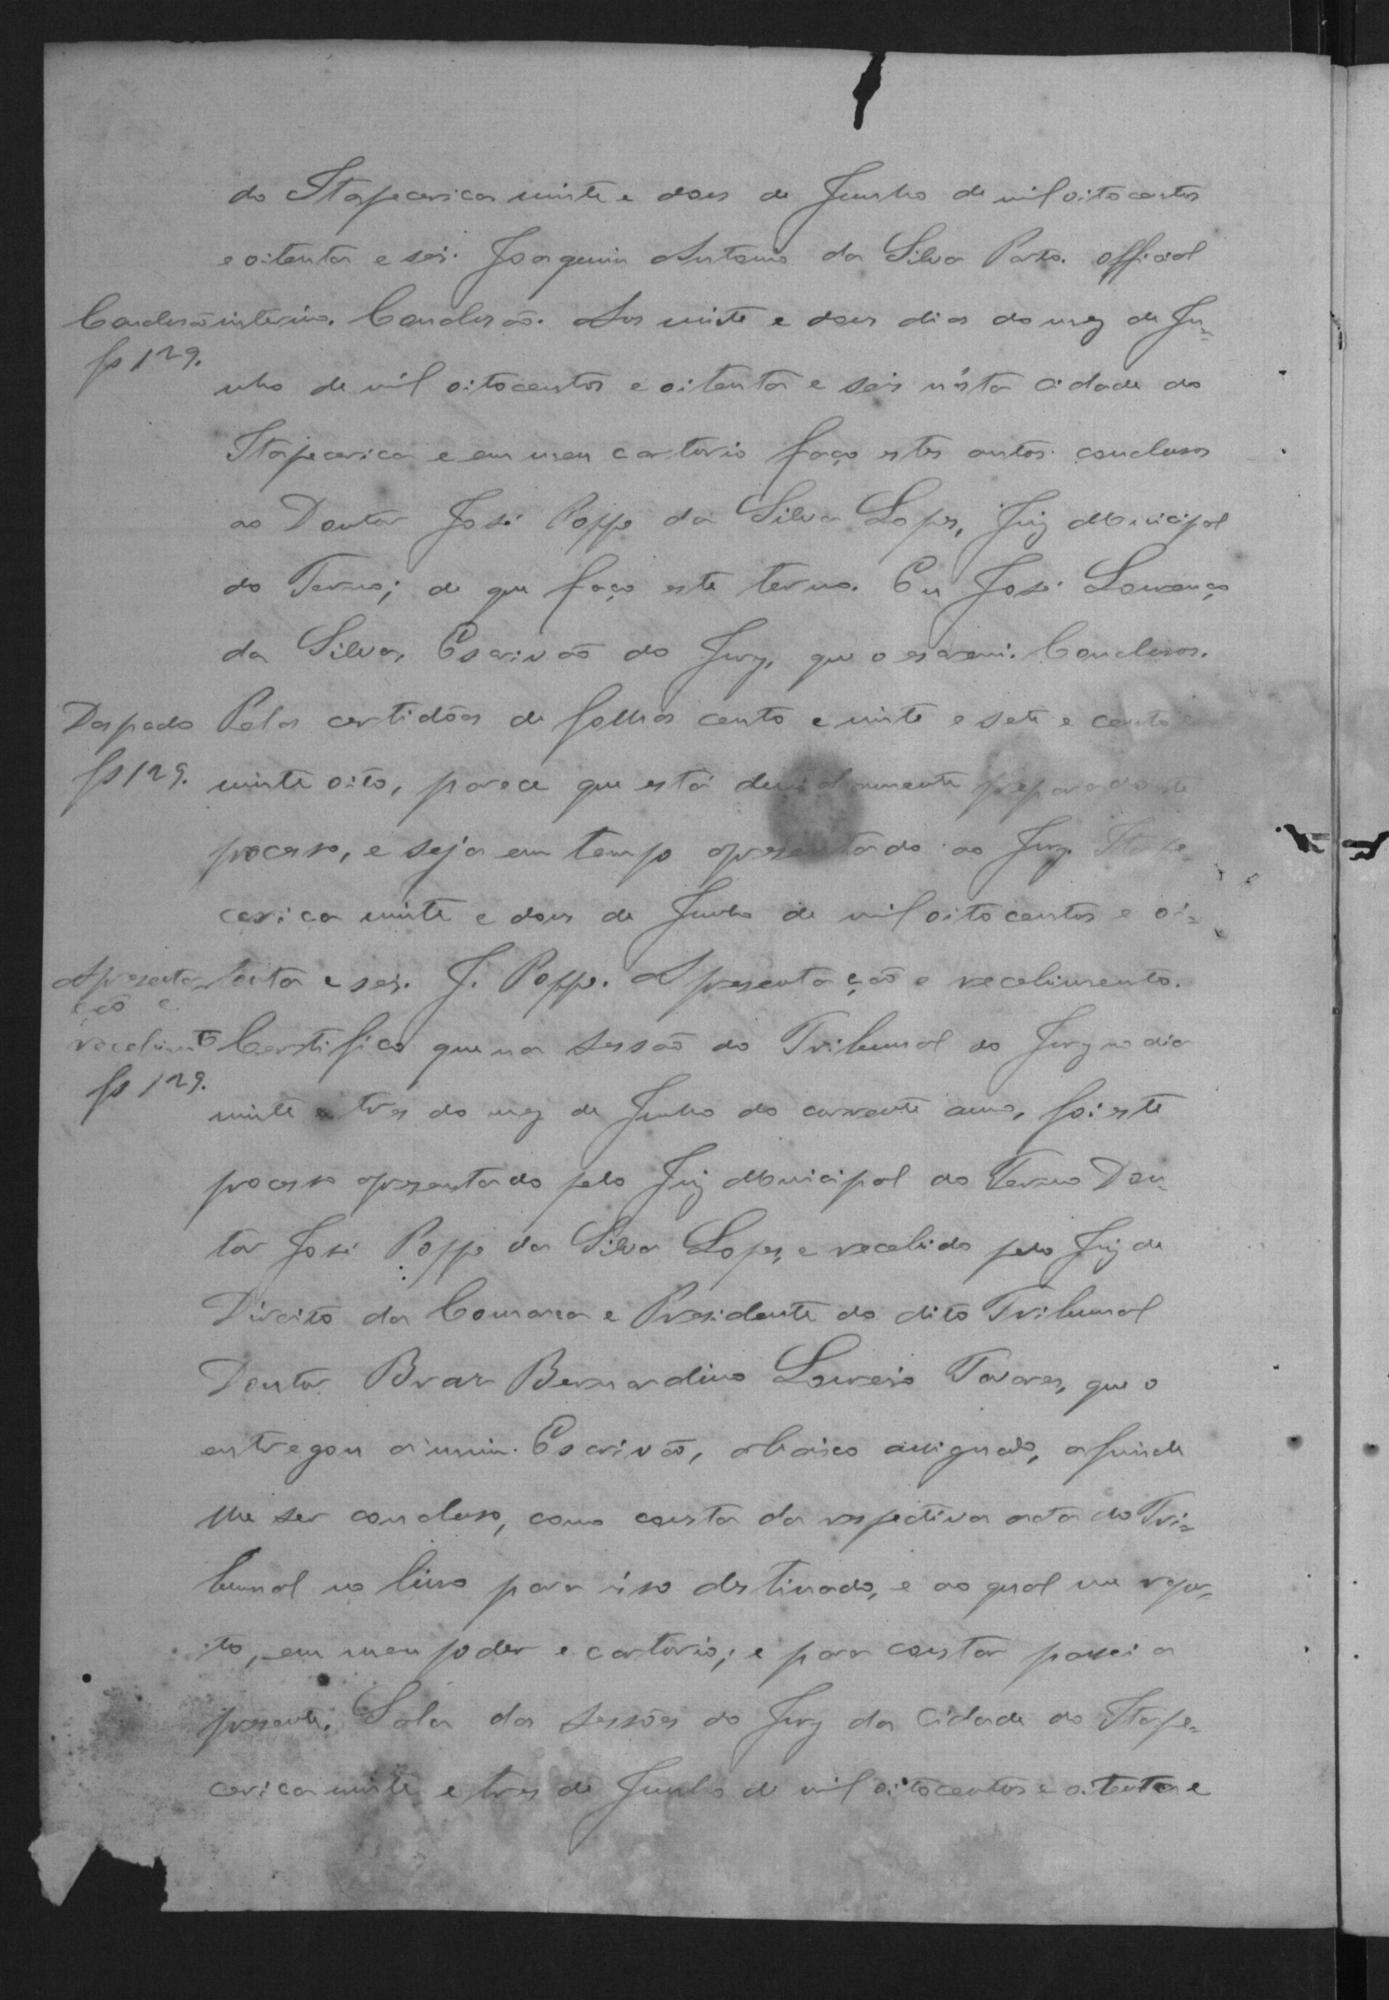 do Itapecerica vinte e dois de Junho de mil oito centos
e oitenta e seis. Joaquim Antonio da Silva Porto. official
Conclusão interino. Conclusão. Aos vinte e dois dias do mez de Ju-
fs 129.
nho de mil oitocentos e oitenta e seis nésta cidade do
Itapecerica e em meu cartorio faço estes autos conclusos
ao Doutor José Poppe da Silva Lopes, Juiz Municipal
do Termo; de que faço este termo. Eu José Lourenço
da Silva, Escrivão do Jury, que o escrevi. Conclusos.
Despacho Pelas certidões de folhas cento e vinte e sete e cento e
fs 129. vinte oito, parece que está devidamente preparado este
processo, e seja em tempo apresentado ao Jury. Itape-
cerica vinte e dois de Junho de mil oito centos e oi-
Apresenta- tenta e seis. J. Poppe. Apresentação e recebimento.
ção e
recebimto Certifico que na sessão do Tribunal do Jury no dia
fs 129.
vinte e tres do mez de Junho do corrente anno, foi este
processo apresentado pelo Juiz Municipal do Termo Dou-
tor José Poppe da Silva Lopes, e recebido pelo Juiz de
Direito da Comarca e Presidente do dito Tribunal
Doutor Braz Bernardino Loureiro Tavares, que o
entregou a mim Escrivão, abaixo assignado, afim de
lhe ser concluso, como consta da respectiva acta do Tri-
bunal no livro para isso destinado, e ao qual me repor-
to, em meu poder e cartorio; e para constar passei a
presente. Sala das sessões do Jury da cidade do Itape-
cerica vinte e tres de Junho de mil oitocentos e oitenta e